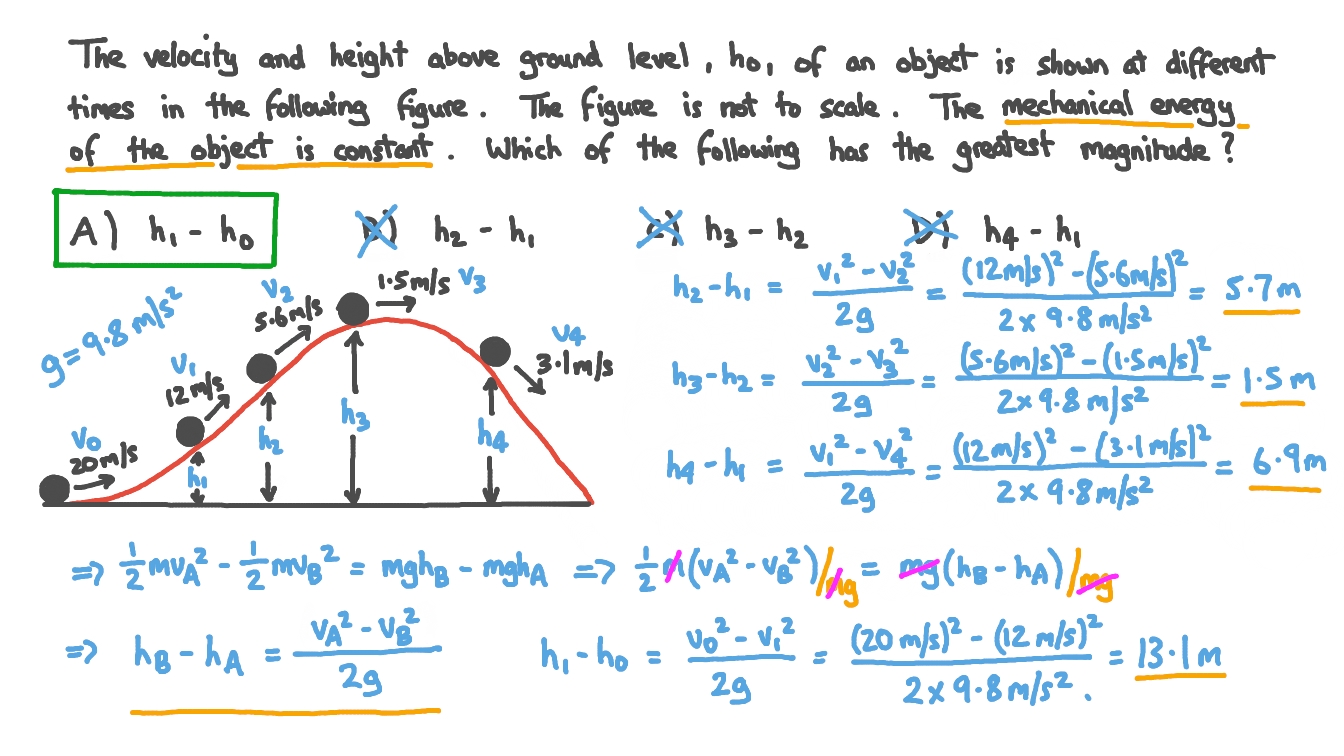 The velocity and height above ground level, h₀, of an object is shown at different
times in the following figure. The figure is not to scale. The mechanical energy
of the object is constant. Which of the following has the greatest magnitude?
A) h₁ - h₀ B) h₂ - h₁ C) h₃ - h₂ D) h₄ - h₁
g = 9.8 m/s²
v₀
20 m/s
v₁
12 m/s
v₂
5.6 m/s
1.5 m/s v₃
v₄
3.1 m/s
h₁
h₂
h₃
h₄
h₂ - h₁ = (v₁² - v₂²)/2g = ((12 m/s)² - (5.6 m/s)²)/(2 x 9.8 m/s²) = 5.7 m
h₃ - h₂ = (v₂² - v₃²)/2g = ((5.6 m/s)² - (1.5 m/s)²)/(2 x 9.8 m/s²) = 1.5 m
h₄ - h₁ = (v₁² - v₄²)/2g = ((12 m/s)² - (3.1 m/s)²)/(2 x 9.8 m/s²) = 6.9 m
=> 1/2 mv_A² - 1/2 mv_B² = mgh_B - mgh_A => 1/2 m(v_A² - v_B²)/mg = mg(h_B - h_A)/mg
=> h_B - h_A = (v_A² - v_B²)/2g
h₁ - h₀ = (v₀² - v₁²)/2g = ((20 m/s)² - (12 m/s)²)/(2 x 9.8 m/s².) = 13.1 m